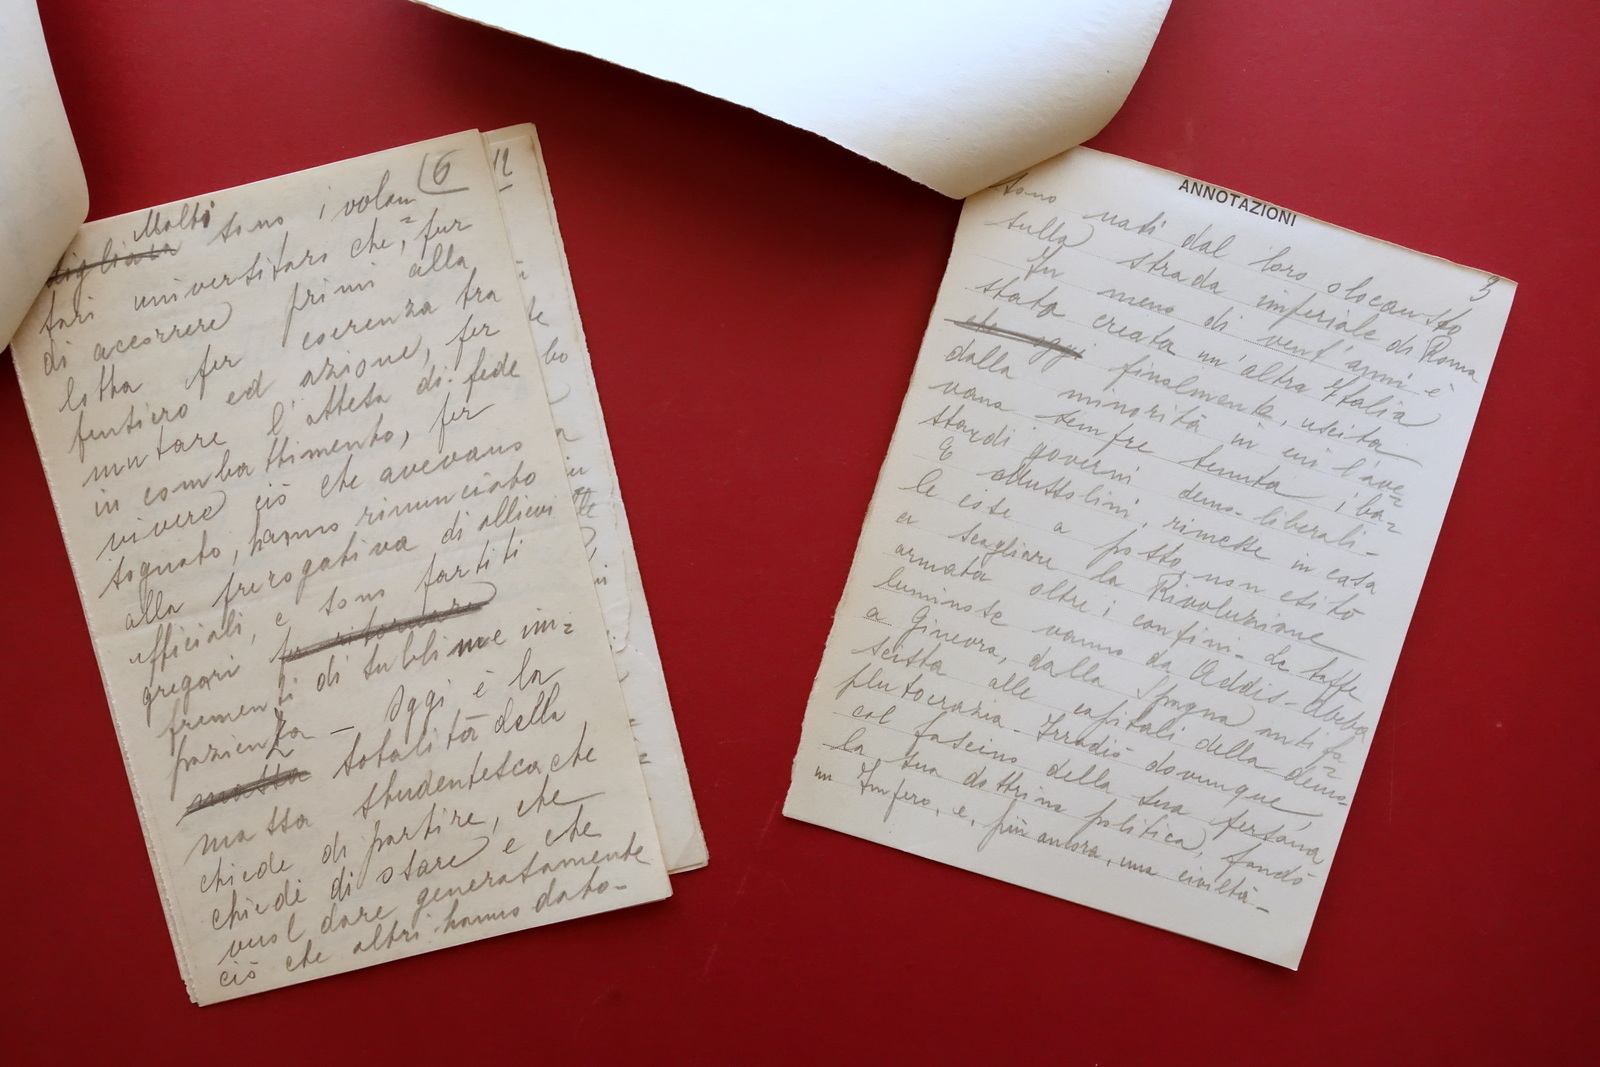 (6
Molti
migliaia sono i volon=
tari universitari che, pur
di accorrere primi alla
lotta per coerenza tra
pensiero ed azione, per
mutare l'attesa di fede
in combattimento, per
vivere ciò che avevano
sognato, hanno rinunciato
alla prerogativa di allievi
ufficiali, e sono partiti
gregari per ritornare
frementi di sublime im=
pazienza - Oggi è la
massa totalità della
massa studentesca che
chiede di partire, che
chiede di osare e che
vuol dare generosamente
ciò che altri hanno dato-
12
ANNOTAZIONI
3
sono nati dal loro olocausto
sulla strada imperiale di Roma
In meno di vent'anni è
stata creata un'altra Italia
che oggi finalmente, uscita
dalla minorità in cui l'ave=
vano sempre tenuta i ba=
stardi governi demo-liberali-
E Mussolini, rimesse in casa
le cose a posto, non esitò
a scagliare la Rivoluzione
armata oltre i confini- Le tappe
luminose vanno da Addis-Abeba
a Ginevra, dalla Spagna antifa=
scista alle capitali della demo=
plutocrazia- Irradiò dovunque,
col fascino della sua persona
la sua dottrina politica, fondò
un Impero, e, più ancora, una civiltà-